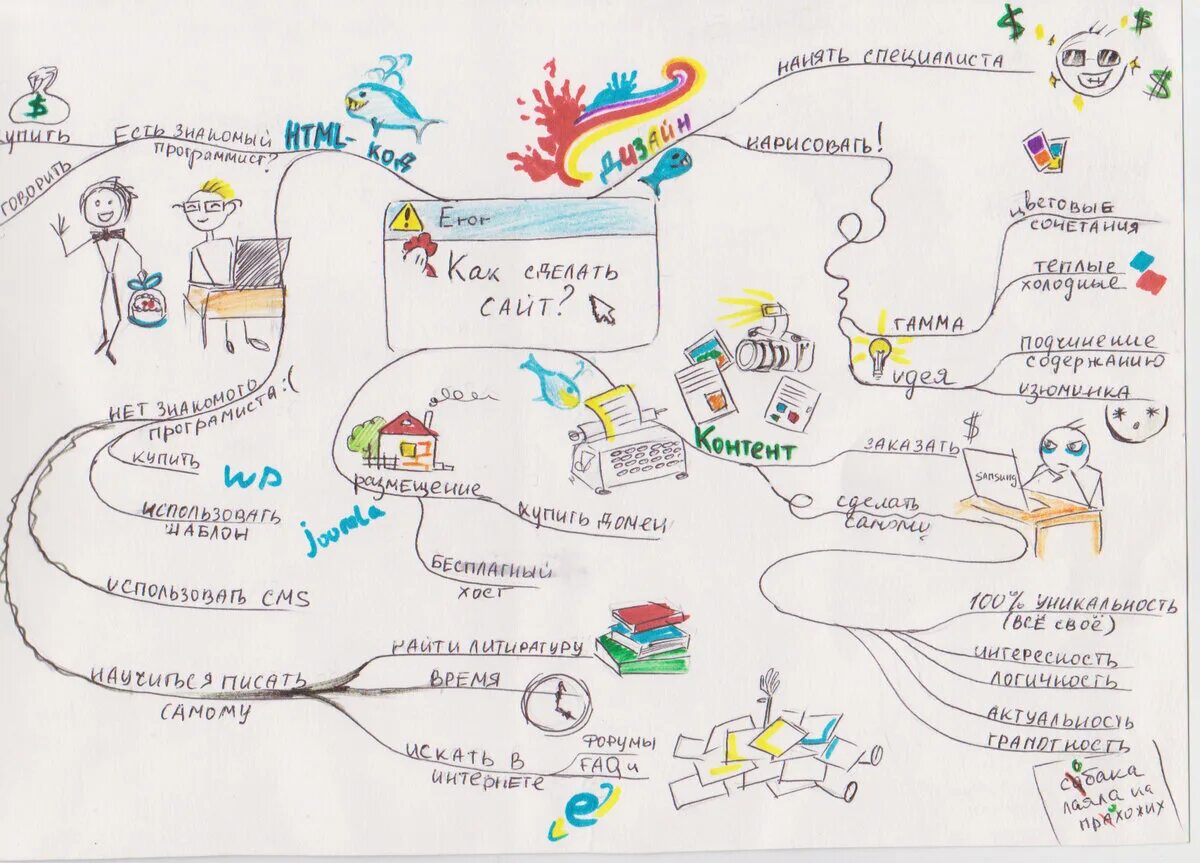 Eror
Как сделать
сайт?
HTML-
код
Есть знакомый
программист?
купить
говорить
$
нет знакомого
програмиста:(
купить
WP
использовать
шаблон
joomla
использовать CMS
научиться писать
самому
найти литиратуру
время
искать в
интернете
форумы
FAQи
e
Дизайн
нанять специалиста
$
$
$
нарисовать!
гамма
цветовые
сочетания
теплые
холодные
идея
подчинение
содержанию
изюминка
Контент
заказать
$
SAMSUNG
сделать
самому
100% уникальность
(всё своё)
интересность
логичность
актуальность
грамотность
собака
лаяла на
прохожих
размещение
купить домен
бесплатный
хост